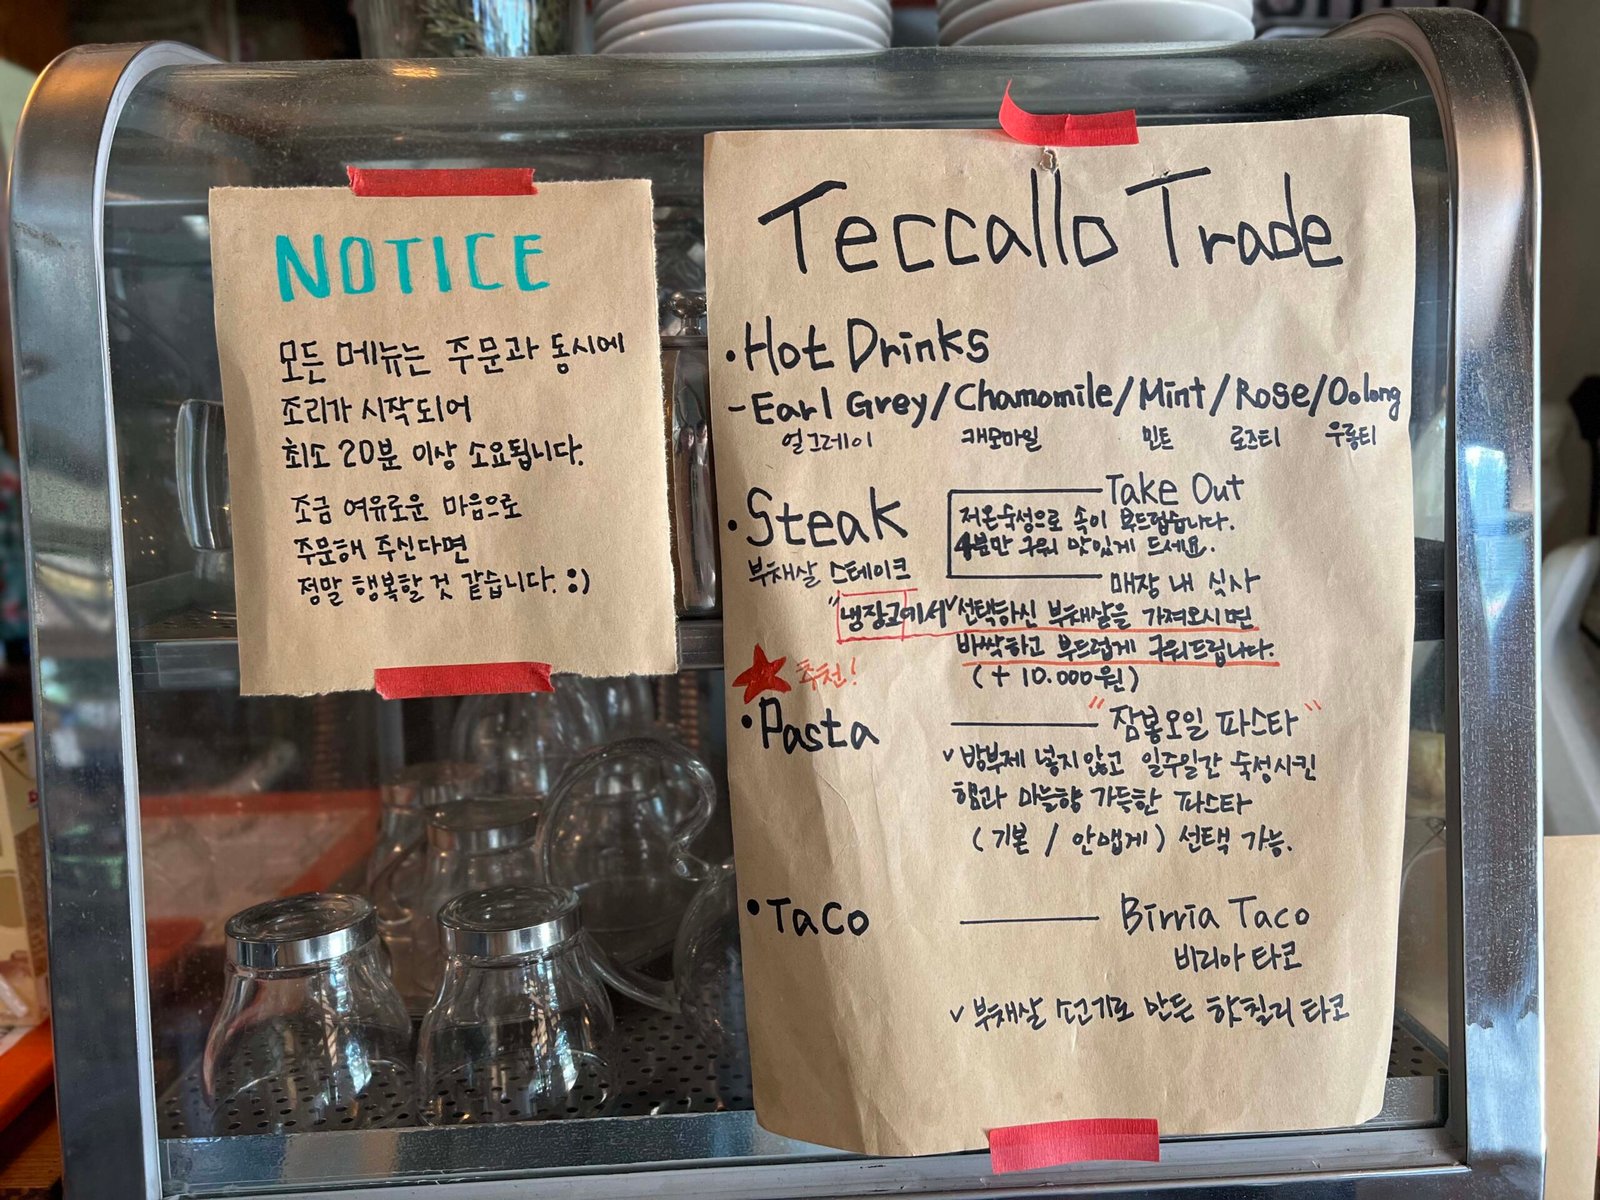 NOTICE
모든 메뉴는 주문과 동시에
조리가 시작되어
최소 20분 이상 소요됩니다.
조금 여유로운 마음으로
주문해 주신다면
정말 행복할 것 같습니다. :)
Teccallo Trade
• Hot Drinks
- Earl Grey/Chamomile/Mint/Rose/Oolong
얼그레이 캐모마일 민트 로즈티 우롱티
• Steak
부채살 스테이크
Take Out
저온숙성으로 속이 부드럽습니다.
4분만 구워 맛있게 드세요.
매장 내 식사
"냉장고에서" 선택하신 부채살을 가져오시면
바싹하고 부드럽게 구워드립니다.
(+10.000원)
★ 추천!
• Pasta
"잠봉오일 파스타"
✓ 방부제 넣지않고 일주일간 숙성시킨
햄과 마늘향 가득한 파스타
(기본 / 안맵게) 선택 가능.
• Taco
Birria Taco
비리아 타코
✓ 부채살 소고기로 만든 핫칠리 타코